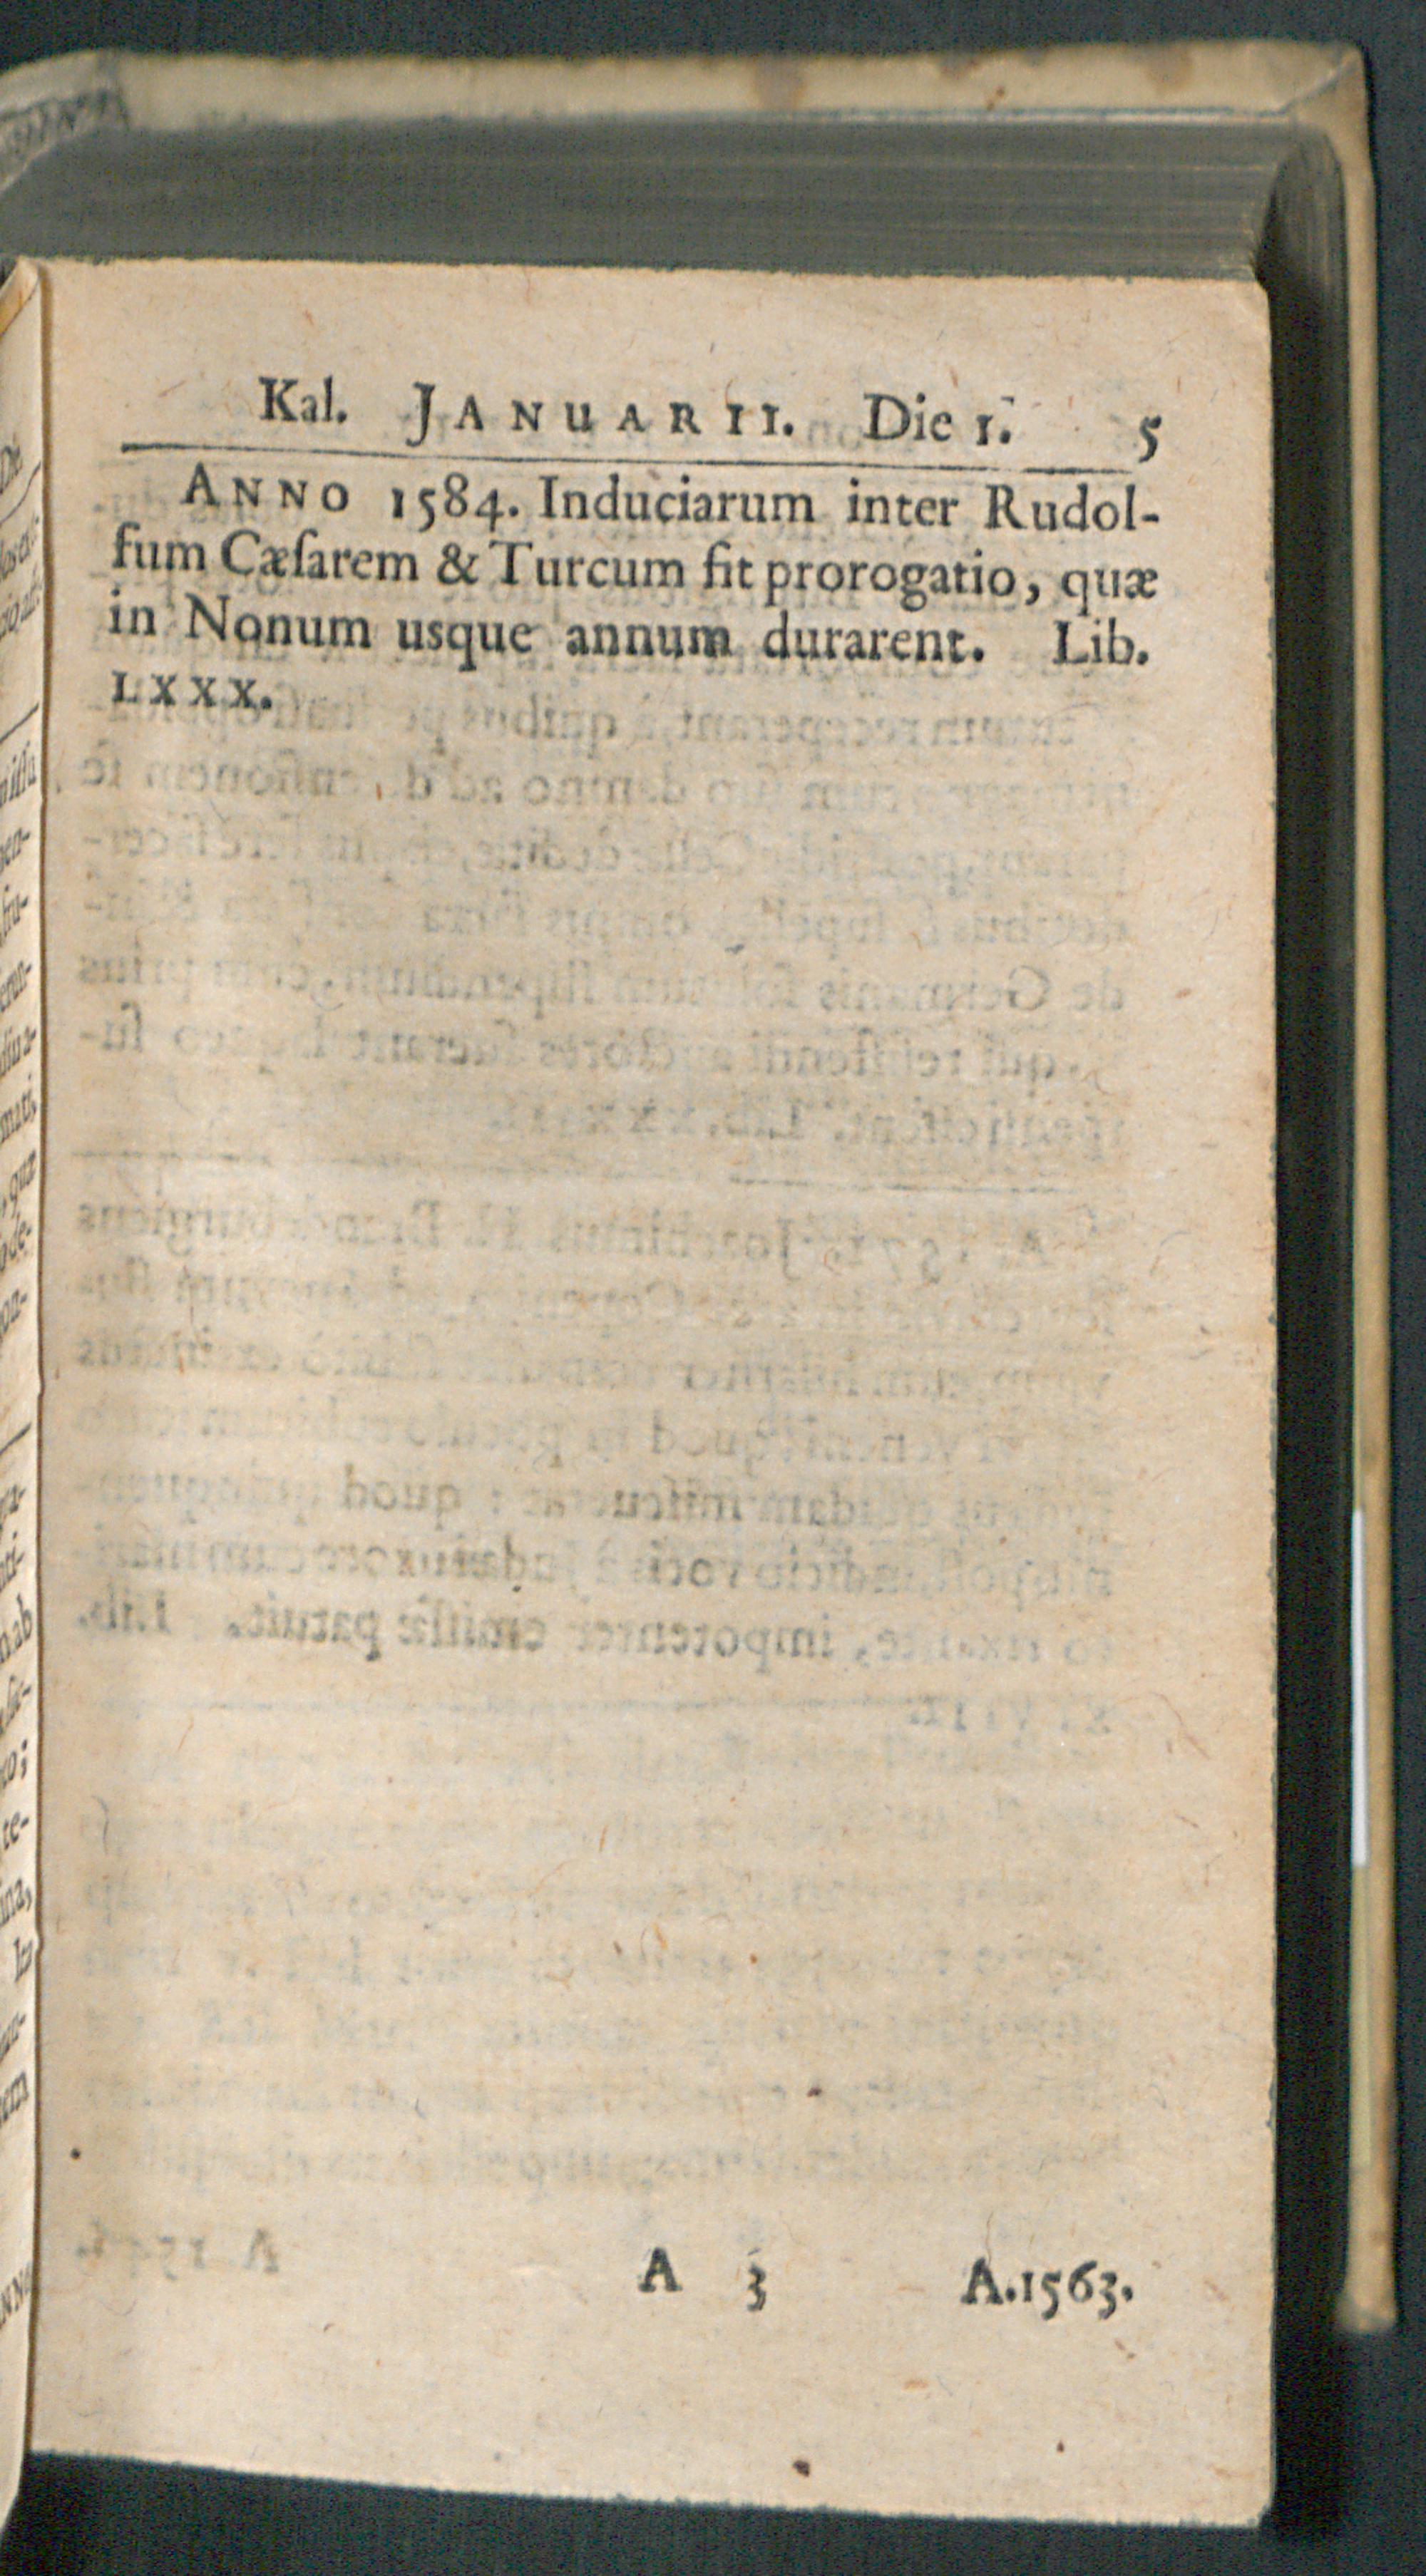 Kal. JANUARII. Die 1. 5
ANNO 1584. Induciarum inter Rudol-
fum Cæſarem & Turcum fit prorogatio, quæ
in Nonum usque annum durarent. Lib.
LXXX.
A 3 A.1563.